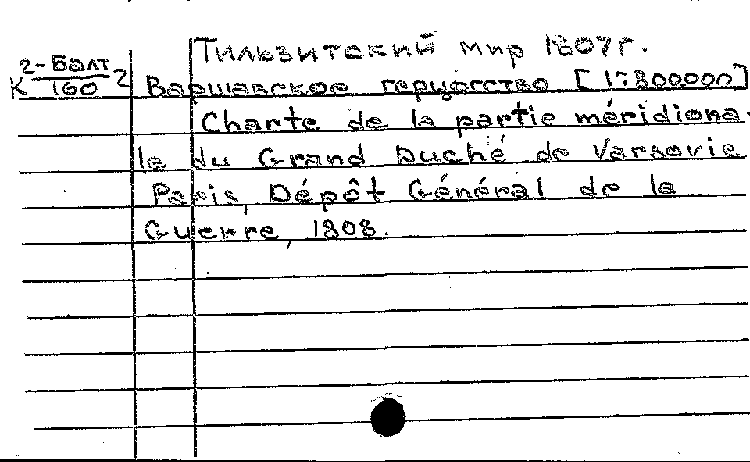 Тильзитский мир 1807г.
К 2-Балт/160 2
Варшавское герцогство [1:800000]
Charte de la partie méridiona-
le du Grand Duché de Varsovie
Paris, Dépôt Général de la
Guerre, 1808.